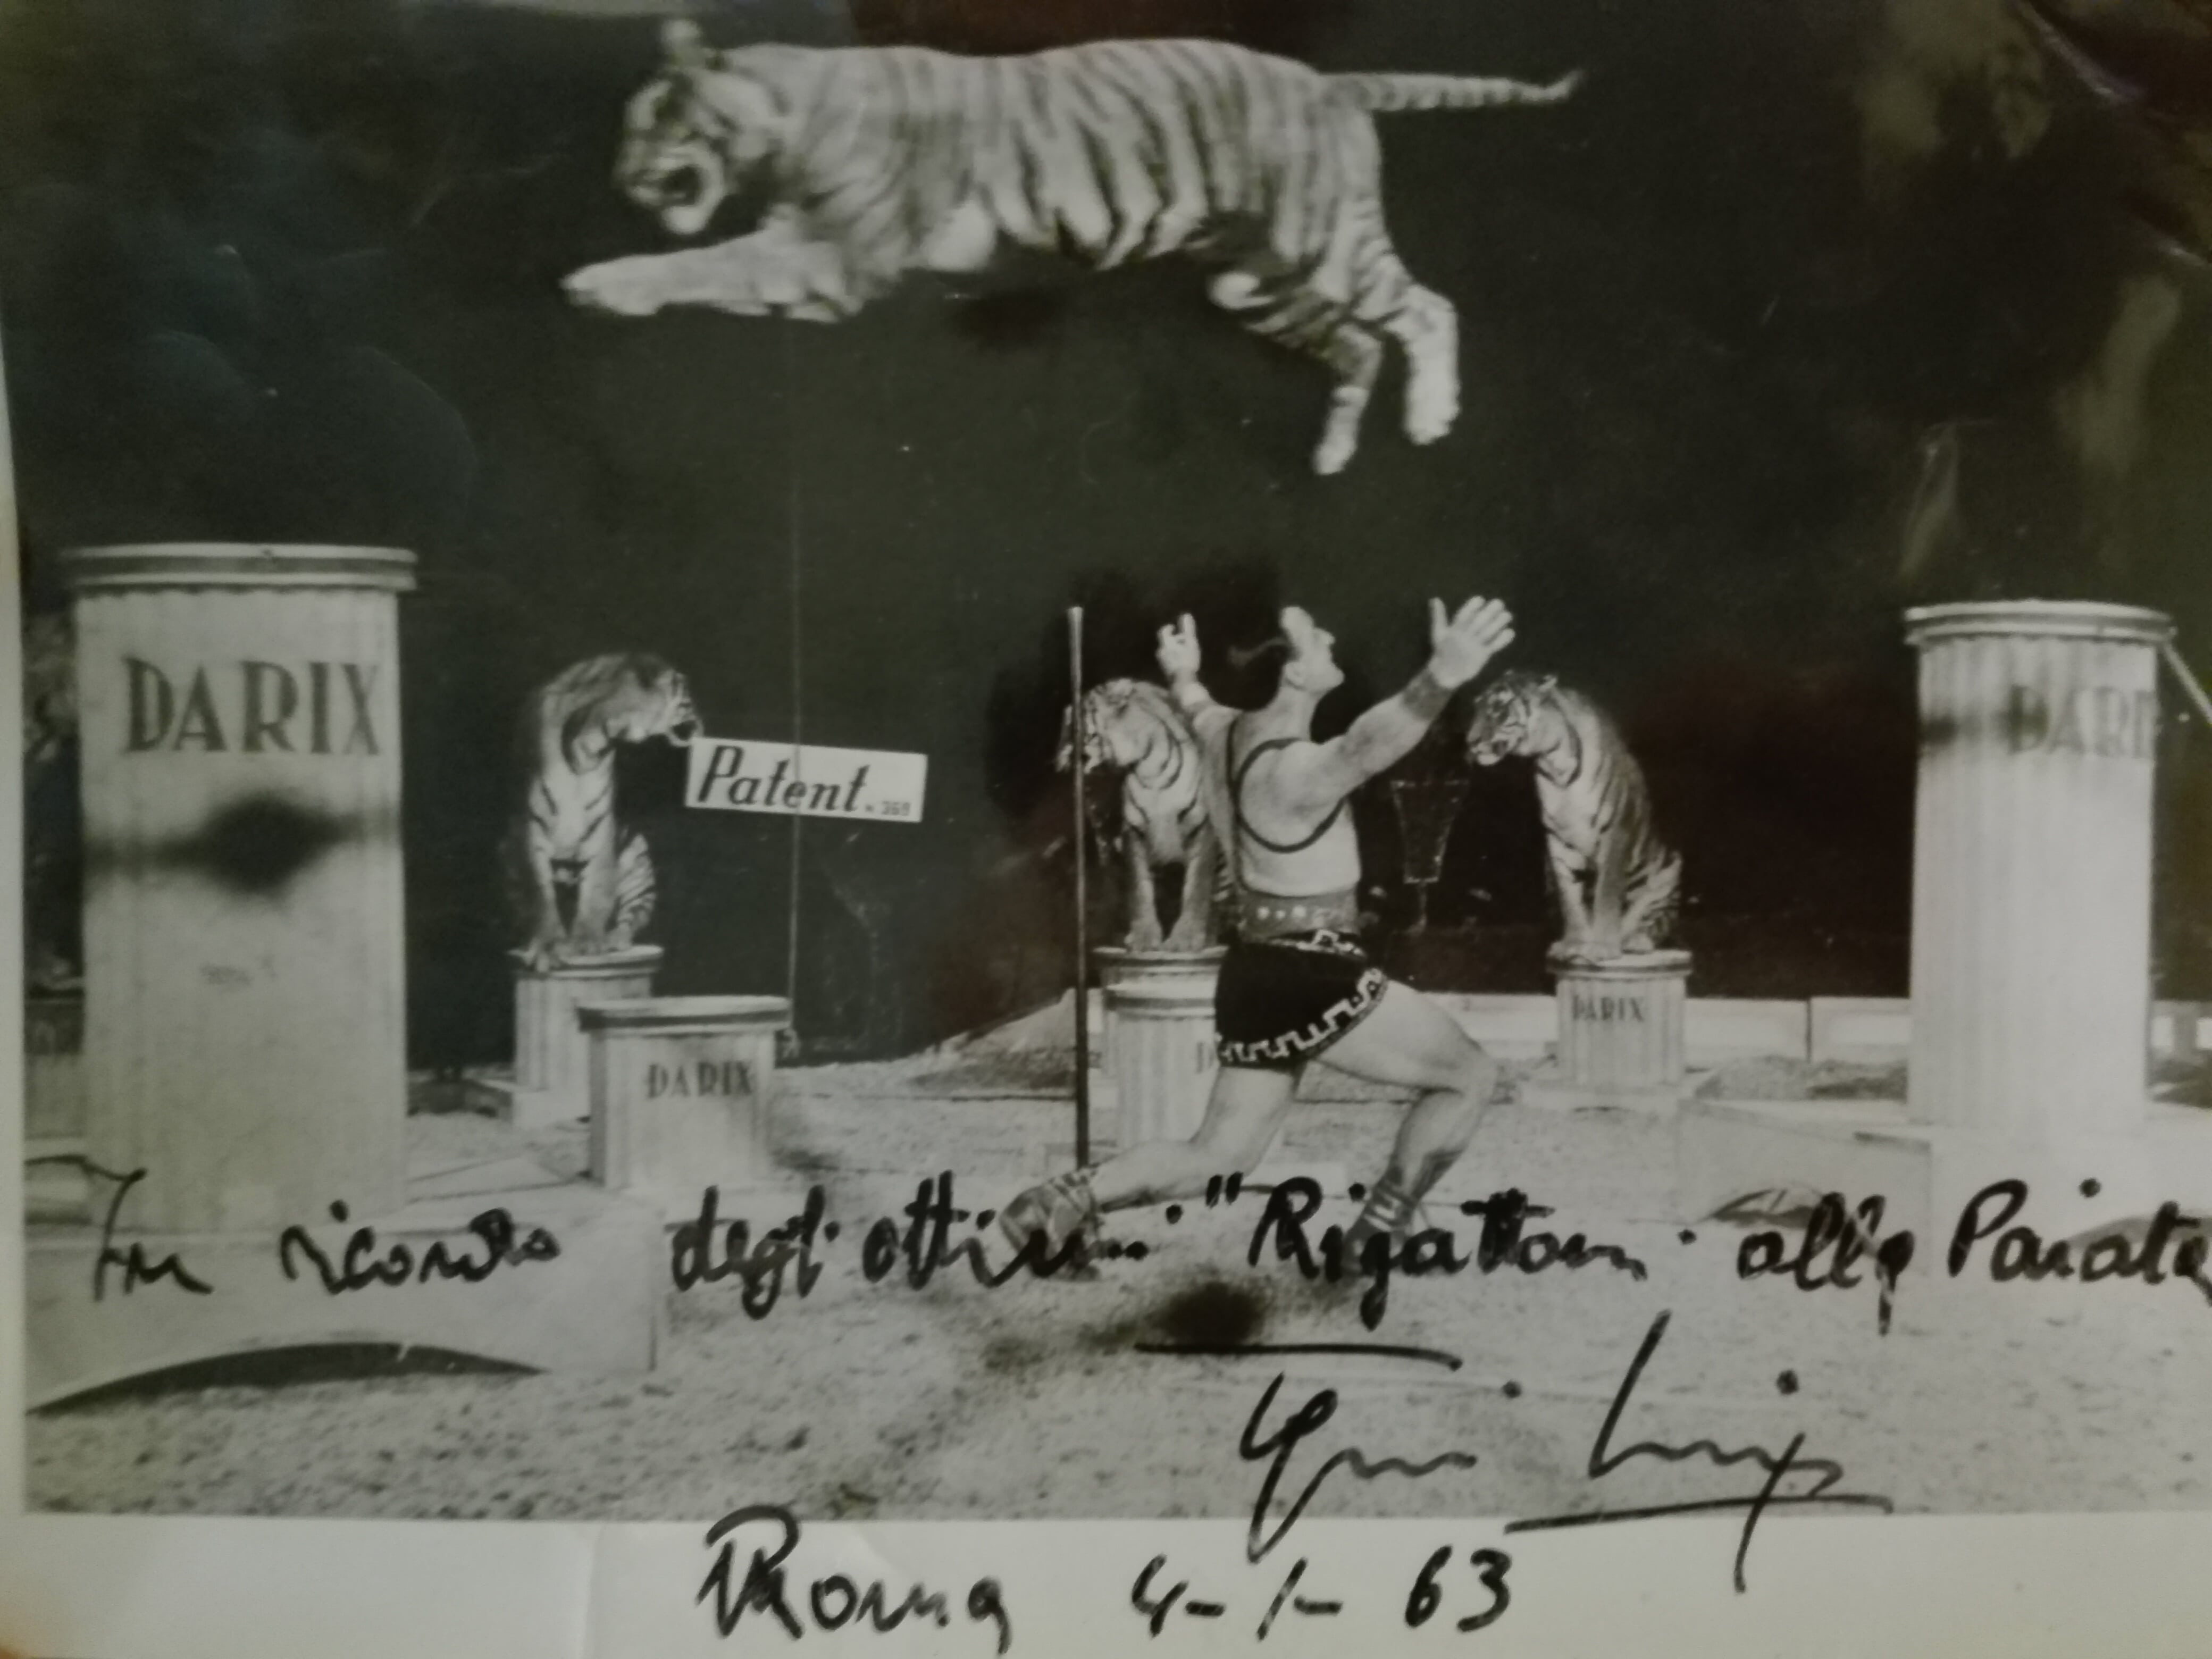 DARIX
DARI
Patent n. 369
DARIX
DARIX
D
In ricordo degli ottimi "Rigatoni alla Paiata
Roma 4-1-63